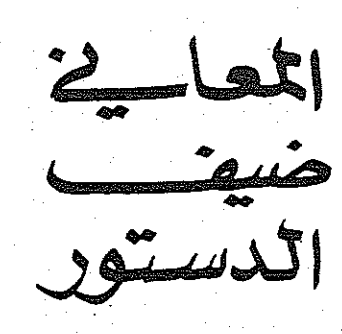 المعاني
ضيف
الدستور